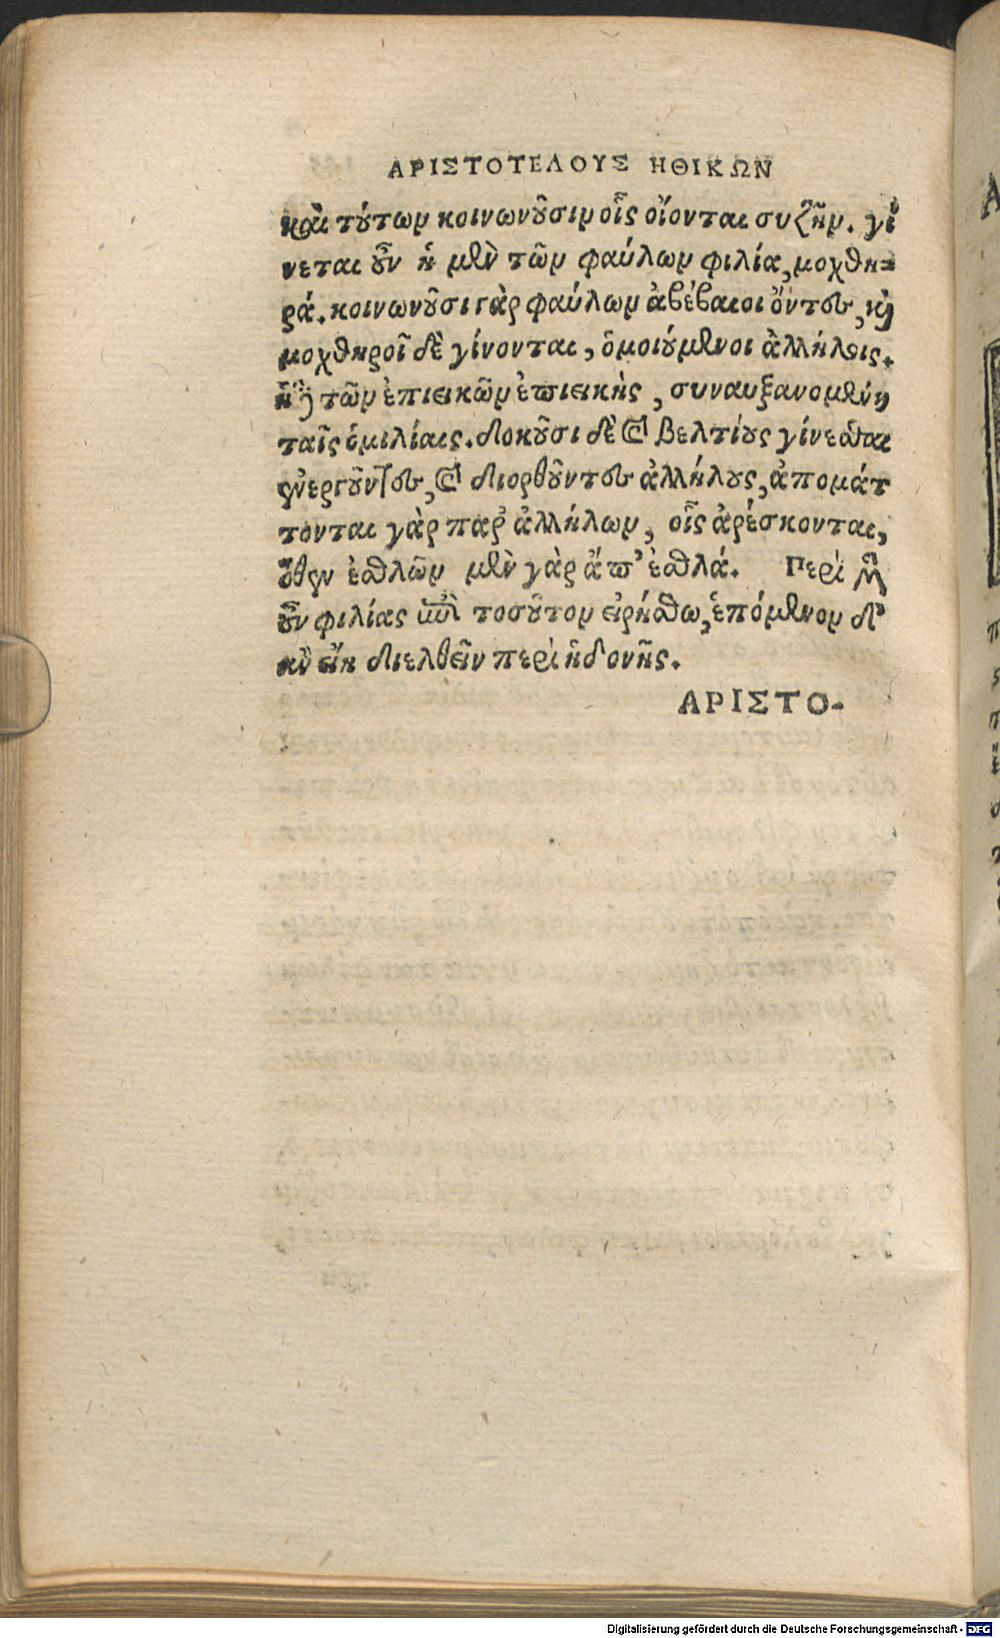 ΑΡΙΣΤΟΤΕΛΟΥΣ ΗΘΙΚΩΝ
καὶ τούτων κοινωνοῦσιν οἷς οἴονται συζῆν. γί
νεται οὖν ἡ μὲν τῶν φαύλων φιλία, μοχθη-
ρά. κοινωνοῦσι γὰρ φαύλων ἀβέβαιοι ὄντες, καὶ
μοχθηροὶ δὲ γίνονται, ὁμοιούμενοι ἀλλήλοις.
ἡ δὲ τῶν ἐπιεικῶν ἐπιεικὴς, συναυξανομένη
ταῖς ὁμιλίαις. δοκοῦσι δὲ καὶ βελτίους γίνεσθαι
ἐνεργοῦντες, καὶ διορθοῦντες ἀλλήλους, ἀπομάτ
τονται γὰρ παρ᾽ ἀλλήλων, οἷς ἀρέσκονται,
ὅθεν ἐσθλῶν μὲν γὰρ ἄπ᾽ ἐσθλά. Περὶ μὲν
οὖν φιλίας ἐπὶ τοσοῦτον εἰρήσθω, ἑπόμενον δ᾽
ἂν εἴη διελθεῖν περὶ ἡδονῆς.
ΑΡΙΣΤΟ-
Digitalisierung gefördert durch die Deutsche Forschungsgemeinschaft - DFG